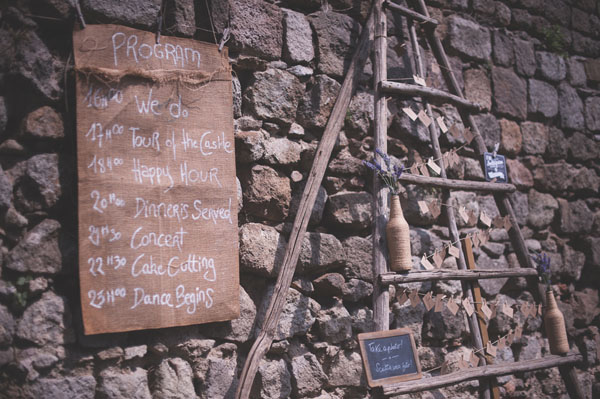 PROGRAM
16H30 We do
17H00 Tour of the Castle
18H00 Happy Hour
20H00 Dinner is Served
21H30 Concert
22H30 Cake Cutting
23H00 Dance Begins
Take a photo